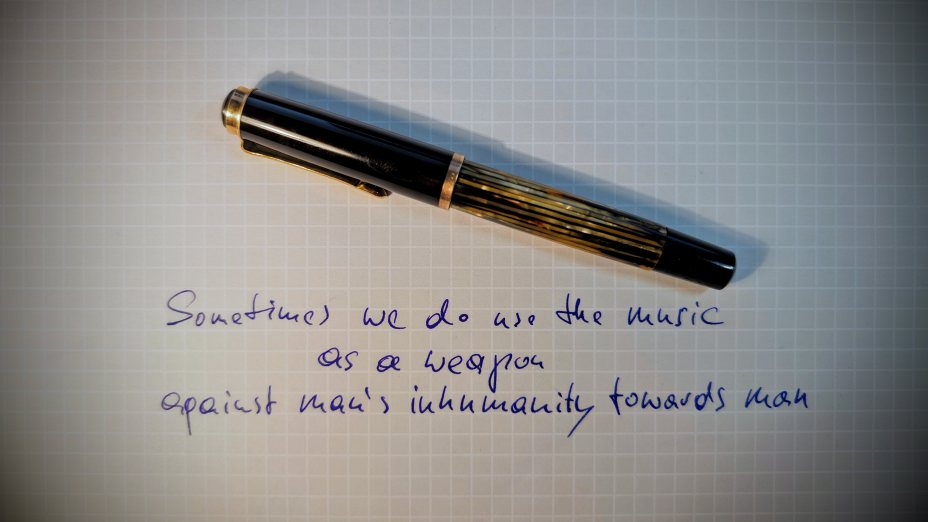 Sometimes we do use the music
as a weapon
against man's inhumanity towards man